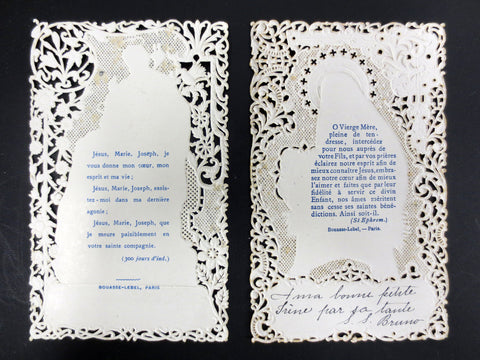 Jésus, Marie, Joseph, je
vous donne mon cœur, mon
esprit et ma vie;
Jésus, Marie, Joseph, assis-
tez-moi dans ma dernière
agonie;
Jésus, Marie, Joseph, que
je meure paisiblement en
votre sainte compagnie.
(300 jours d'ind.)
BOUASSE-LEBEL, PARIS
O Vierge Mère,
pleine de ten-
dresse, intercédez
pour nous auprès de
votre Fils, et par vos prières
éclairez notre esprit afin de
mieux connaître Jésus, embra-
sez notre cœur afin de mieux
l'aimer et faites que par leur
fidélité à servir ce divin
Enfant, nos âmes méritent
sans cesse ses saintes béné-
dictions. Ainsi soit-il.
(St Ephrem.)
Bouasse-Lebel, — Paris.
A ma bonne petite
Irène par sa tante
S. S. Bruno